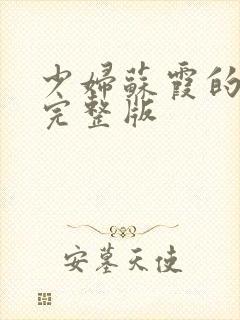 少婦蘇霞的
完整版
安墓天使